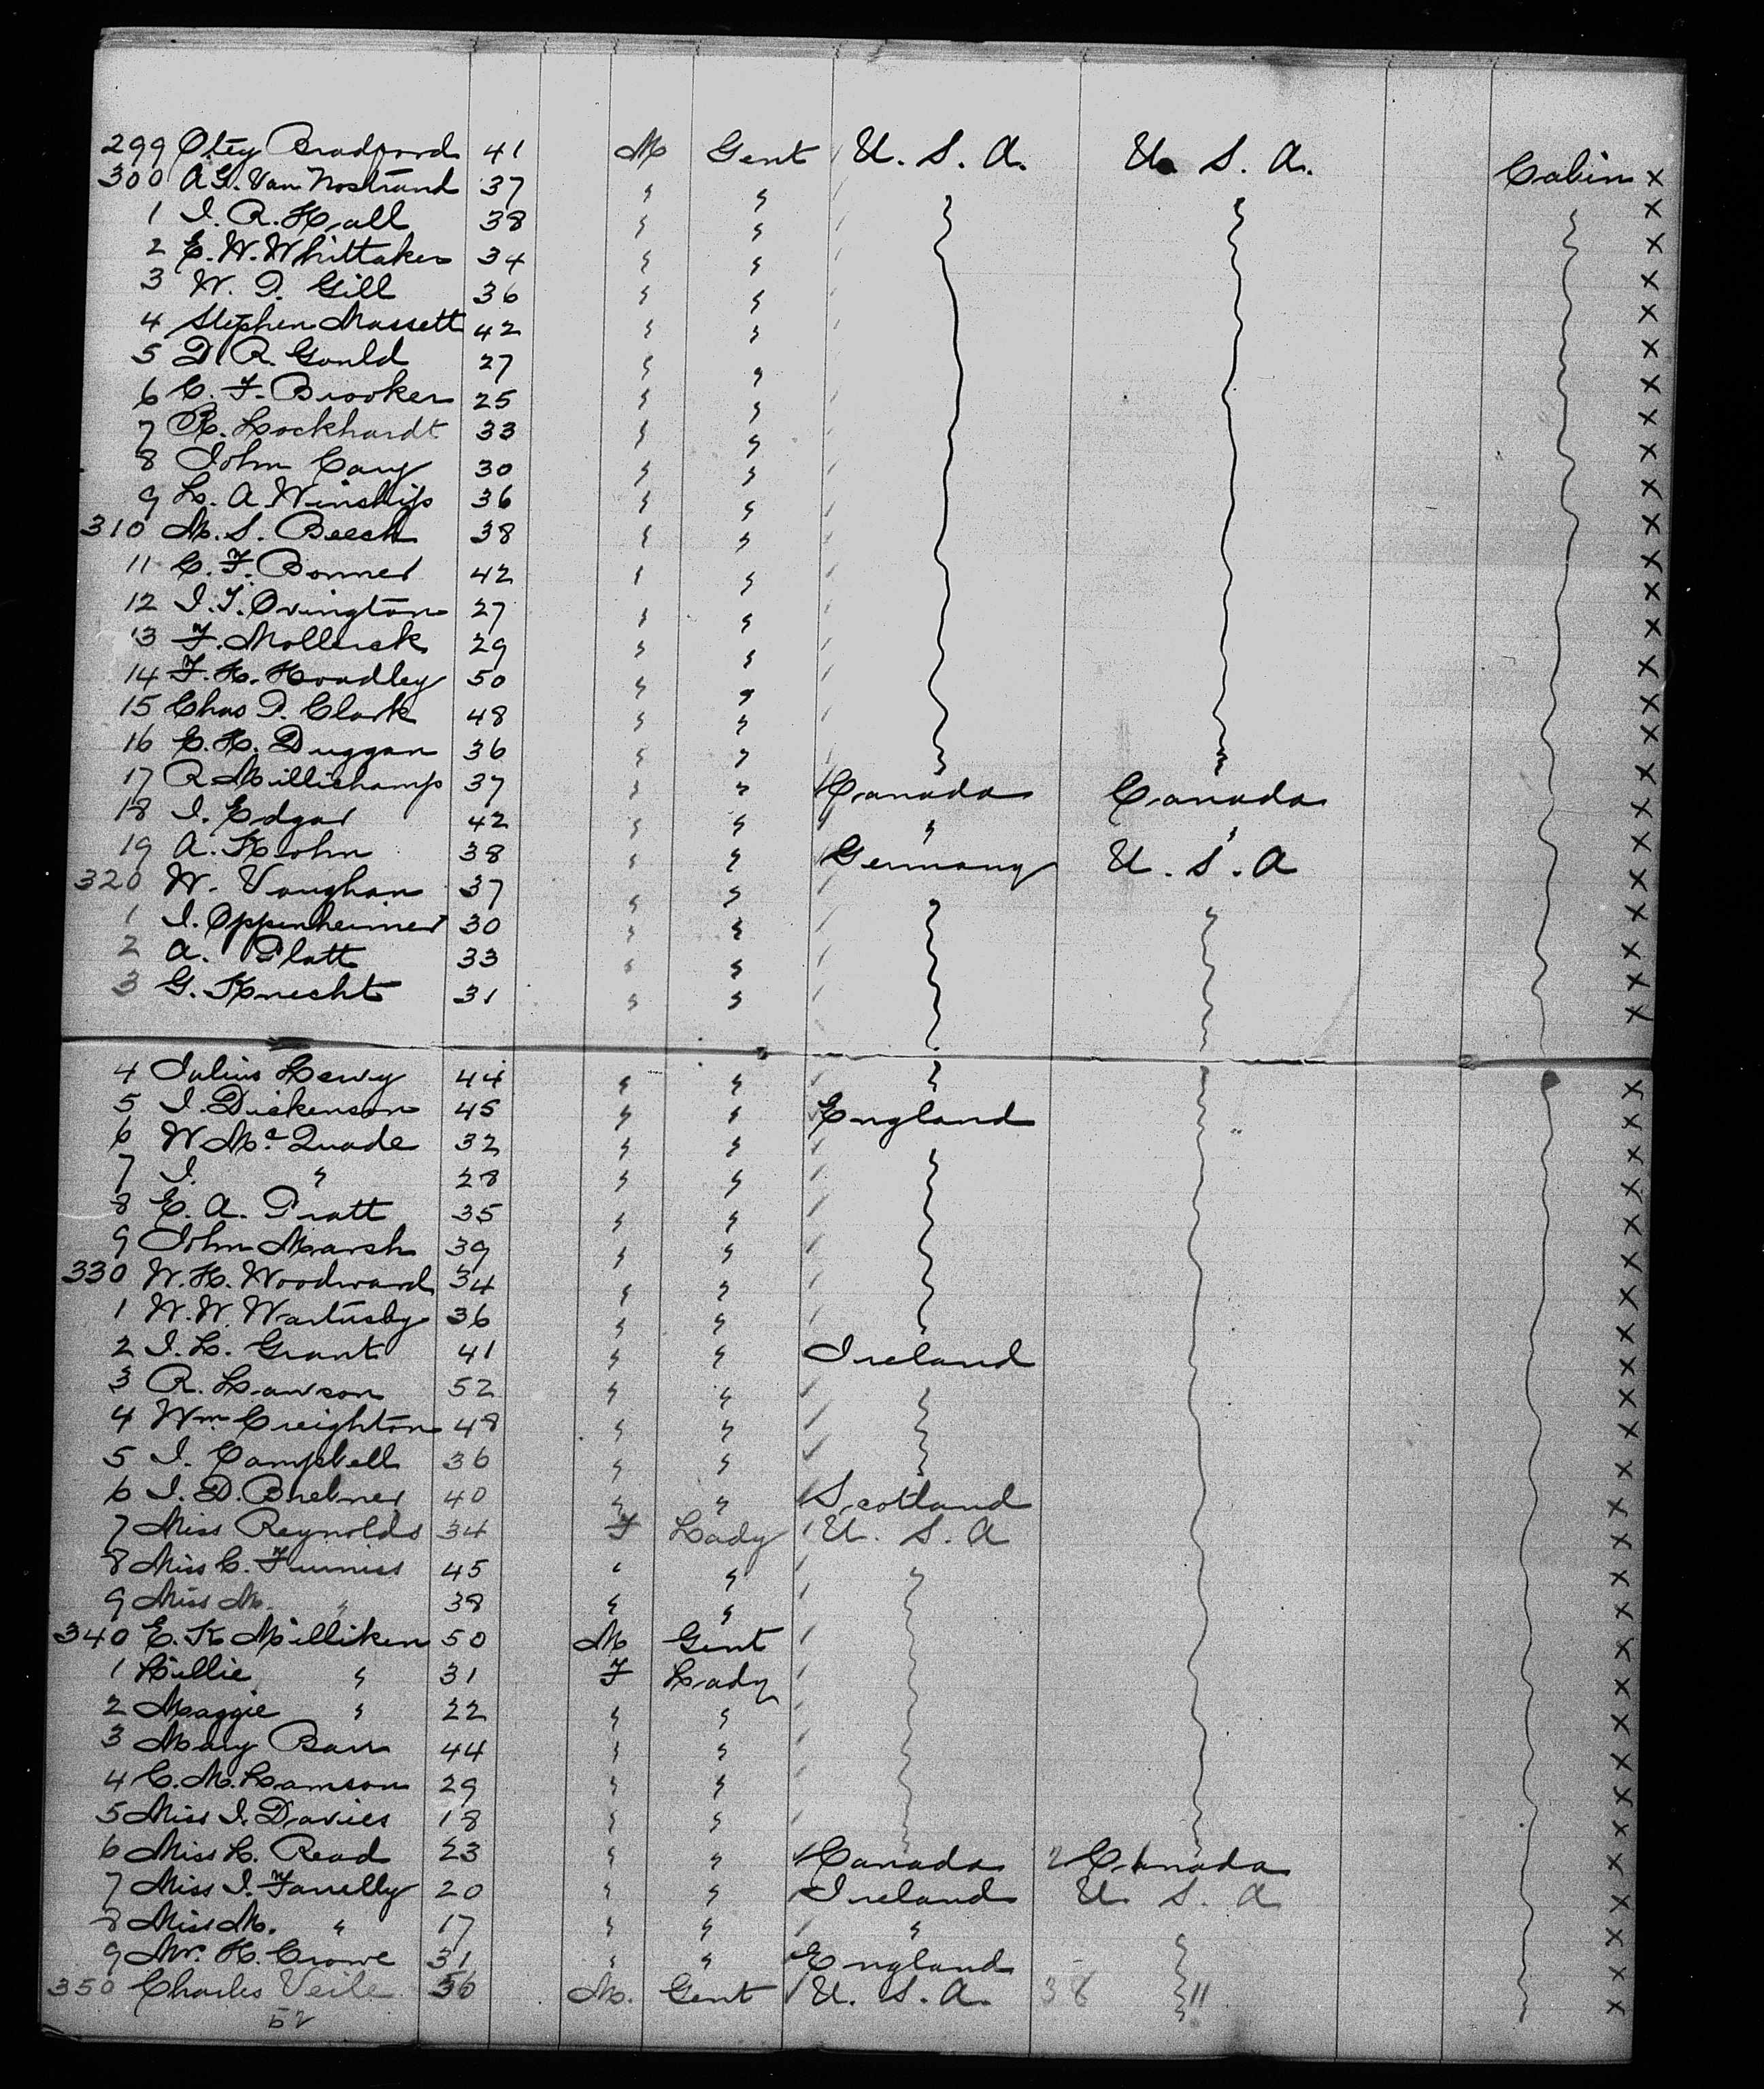 299 Otey Bradford 41 M Gent U. S. A. U. S. A. Cabin X
300 A. G. Van Nostrand 37 " " X
1 I. R. Hall 38 " " X
2 E. W. Whittaker 34 " " X
3 W. P. Gill 36 " " X
4 Stephen Massett 42 " " X
5 D. R. Gould 27 " " X
6 C. F. Brooker 25 " " X
7 R. Lockhardt 33 " " X
8 John Cary 30 " " X
9 L. A. Winship 36 " " X
310 M. S. Beech 38 " " X
11 C. F. Bonner 42 " " X
12 I. T. Ovington 27 " " X
13 F. Mollerick 29 " " X
14 F. H. Hoadley 50 " " X
15 Chas P. Clark 48 " " X
16 E. H. Duggan 36 " " X
17 R. Millichamp 37 " " Canada Canada X
18 I. Edgar 42 " " " " X
19 A. Krohn 38 " " Germany U. S. A X
320 W. Vaughan 37 " " X
1 I. Oppenheimer 30 " " X
2 A. Platt 33 " " X
3 G. Knecht 31 " " X
4 Julius Lewy 44 " " " X
5 I. Dickenson 45 " " England X
6 W Mc Quade 32 " " X
7 I. " 28 " " X
8 E. A. Pratt 35 " " X
9 John Marsh 39 " " X
330 W. H. Woodward 34 " " X
1 W. W. 36 " " X
2 I. L. Grant 41 " " Ireland X
3 R. Lawson 52 " " X
4 Wm Creighton 48 " " X
5 I. Campbell 36 " " X
6 I. D. Brebner 40 " " Scotland X
7 Miss Reynolds 34 F Lady U. S. A X
8 Miss C. Furniss 45 " " X
9 Miss M. " 38 " " X
340 E. K. Milliken 50 M Gent X
1 Lillie " 31 F Lady X
2 Maggie " 22 " " X
3 Mary Barr 44 " " X
4 C. M. Lamson 29 " " X
5 Miss I. Davies 18 " " X
6 Miss L. Read 23 " " Canada 2 Canada X
7 Miss I. Farrelly 20 " " Ireland U. S. A X
8 Miss M. " 17 " " " X
9 Mr. H. Crowe 31 " " England X
350 Charles Veile 56 M. Gent U. S. A. 38 11 X
52